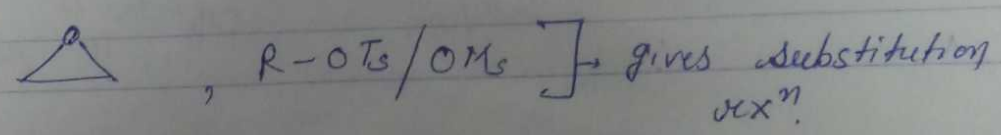 O , R-OTs/OMs ]→ gives substitution
rxⁿ.